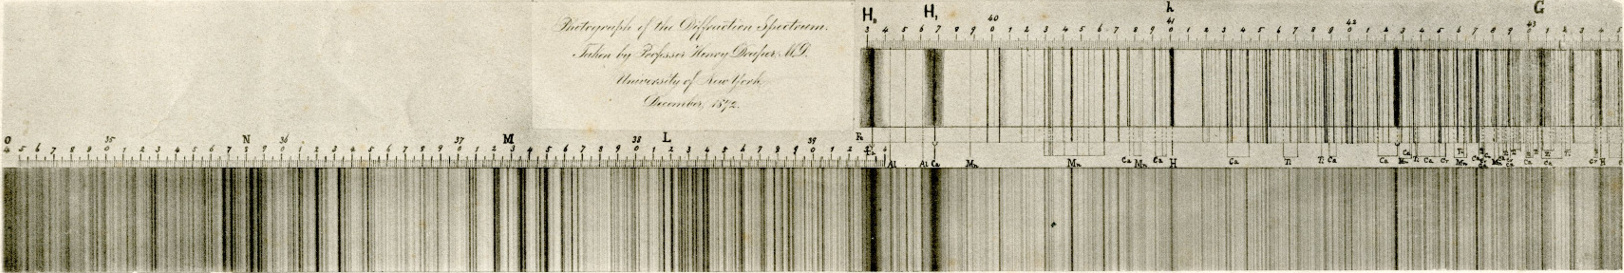 Photograph of the Diffraction Spectrum.
Taken by Professor Henry Draper, M.D.
University of New York,
December, 1872.
H₂ H₁ h G
40 41 42 43
3 4 5 6 7 8 9 0 1 2 3 4 5 6 7 8 9 0 1 2 3 4 5 6 7 8 9 0 1 2 3 4 5 6 7 8 9 0 1 2 3 4 5
O N M L
35 36 37 38 39
4 5 6 7 8 9 0 1 2 3 4 5 6 7 8 9 0 1 2 3 4 5 6 7 8 9 0 1 2 3 4 5 6 7 8 9 0 1 2 3 4 5 6 7 8 9 0 1 2 3 4
Al Al Ca Mn Mn Ca Mn Ca H Ca Ti Ti Ca Ca Ti Ca Cr Cr H